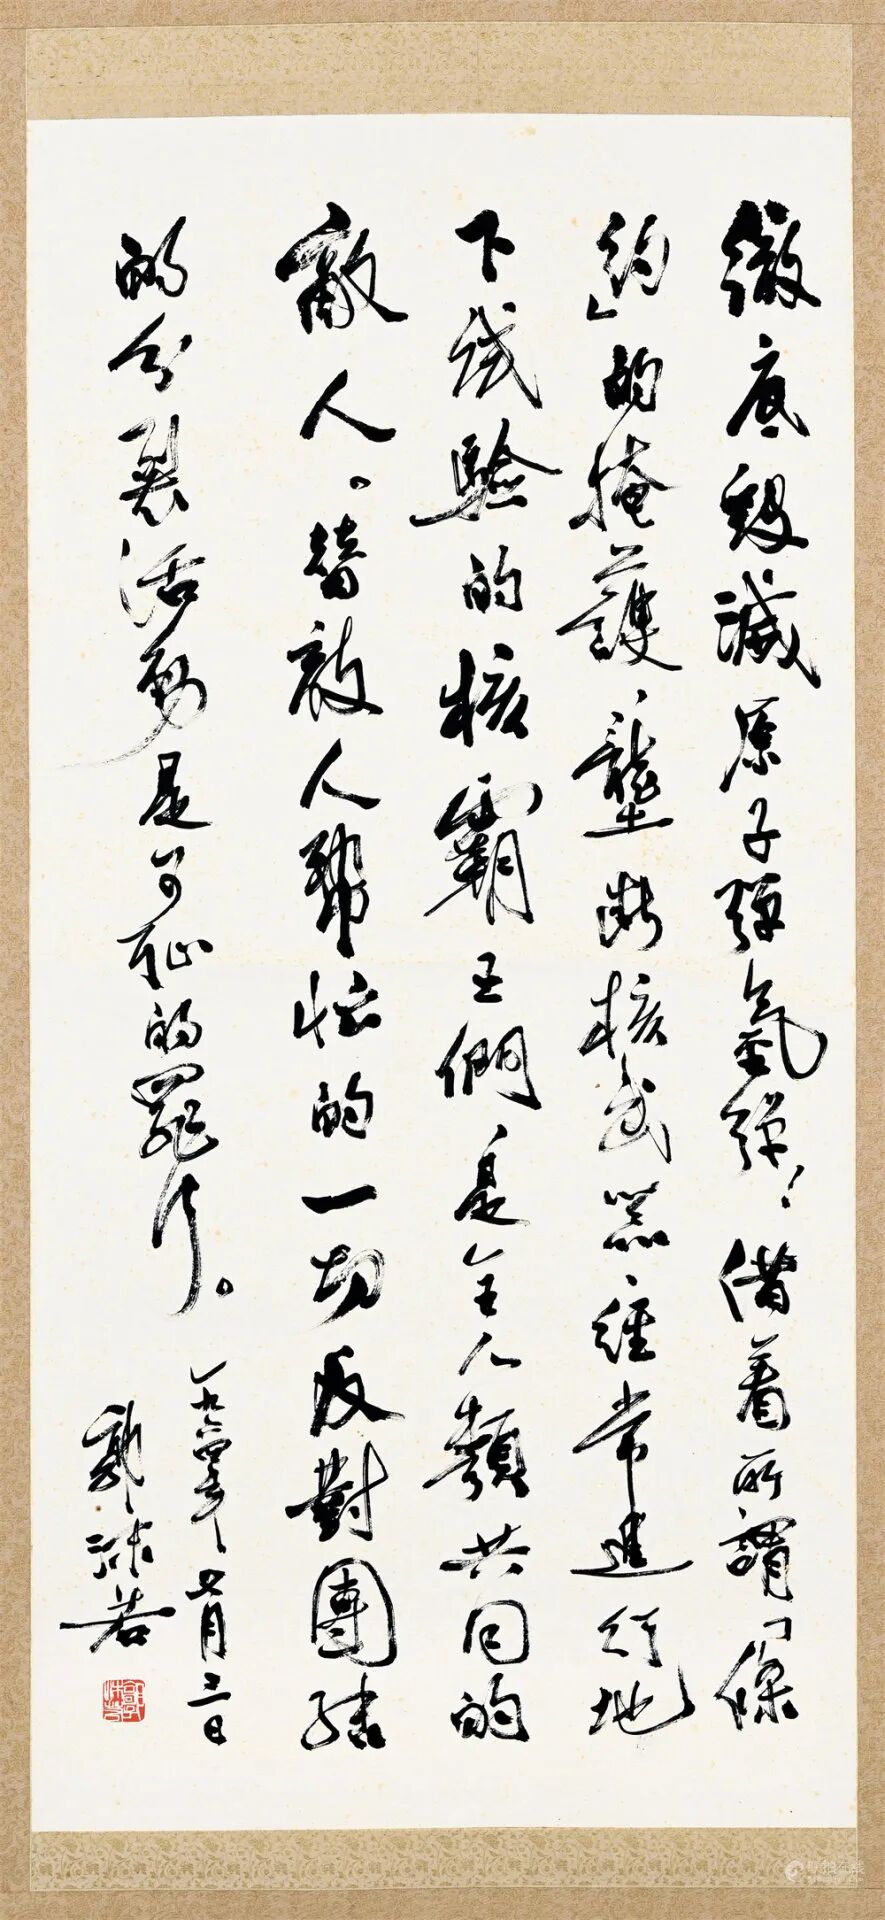 徹底毀滅原子彈氫彈！借着所謂「條
約」的掩護、壟断核武器、經常進行地
下試驗的核霸王們、是全人類共同的
敵人。替敌人幫忙的一切反對團结
的分裂活動是可恥的罪行。
一九六四年、七月三日
郭沫若
郭沫若